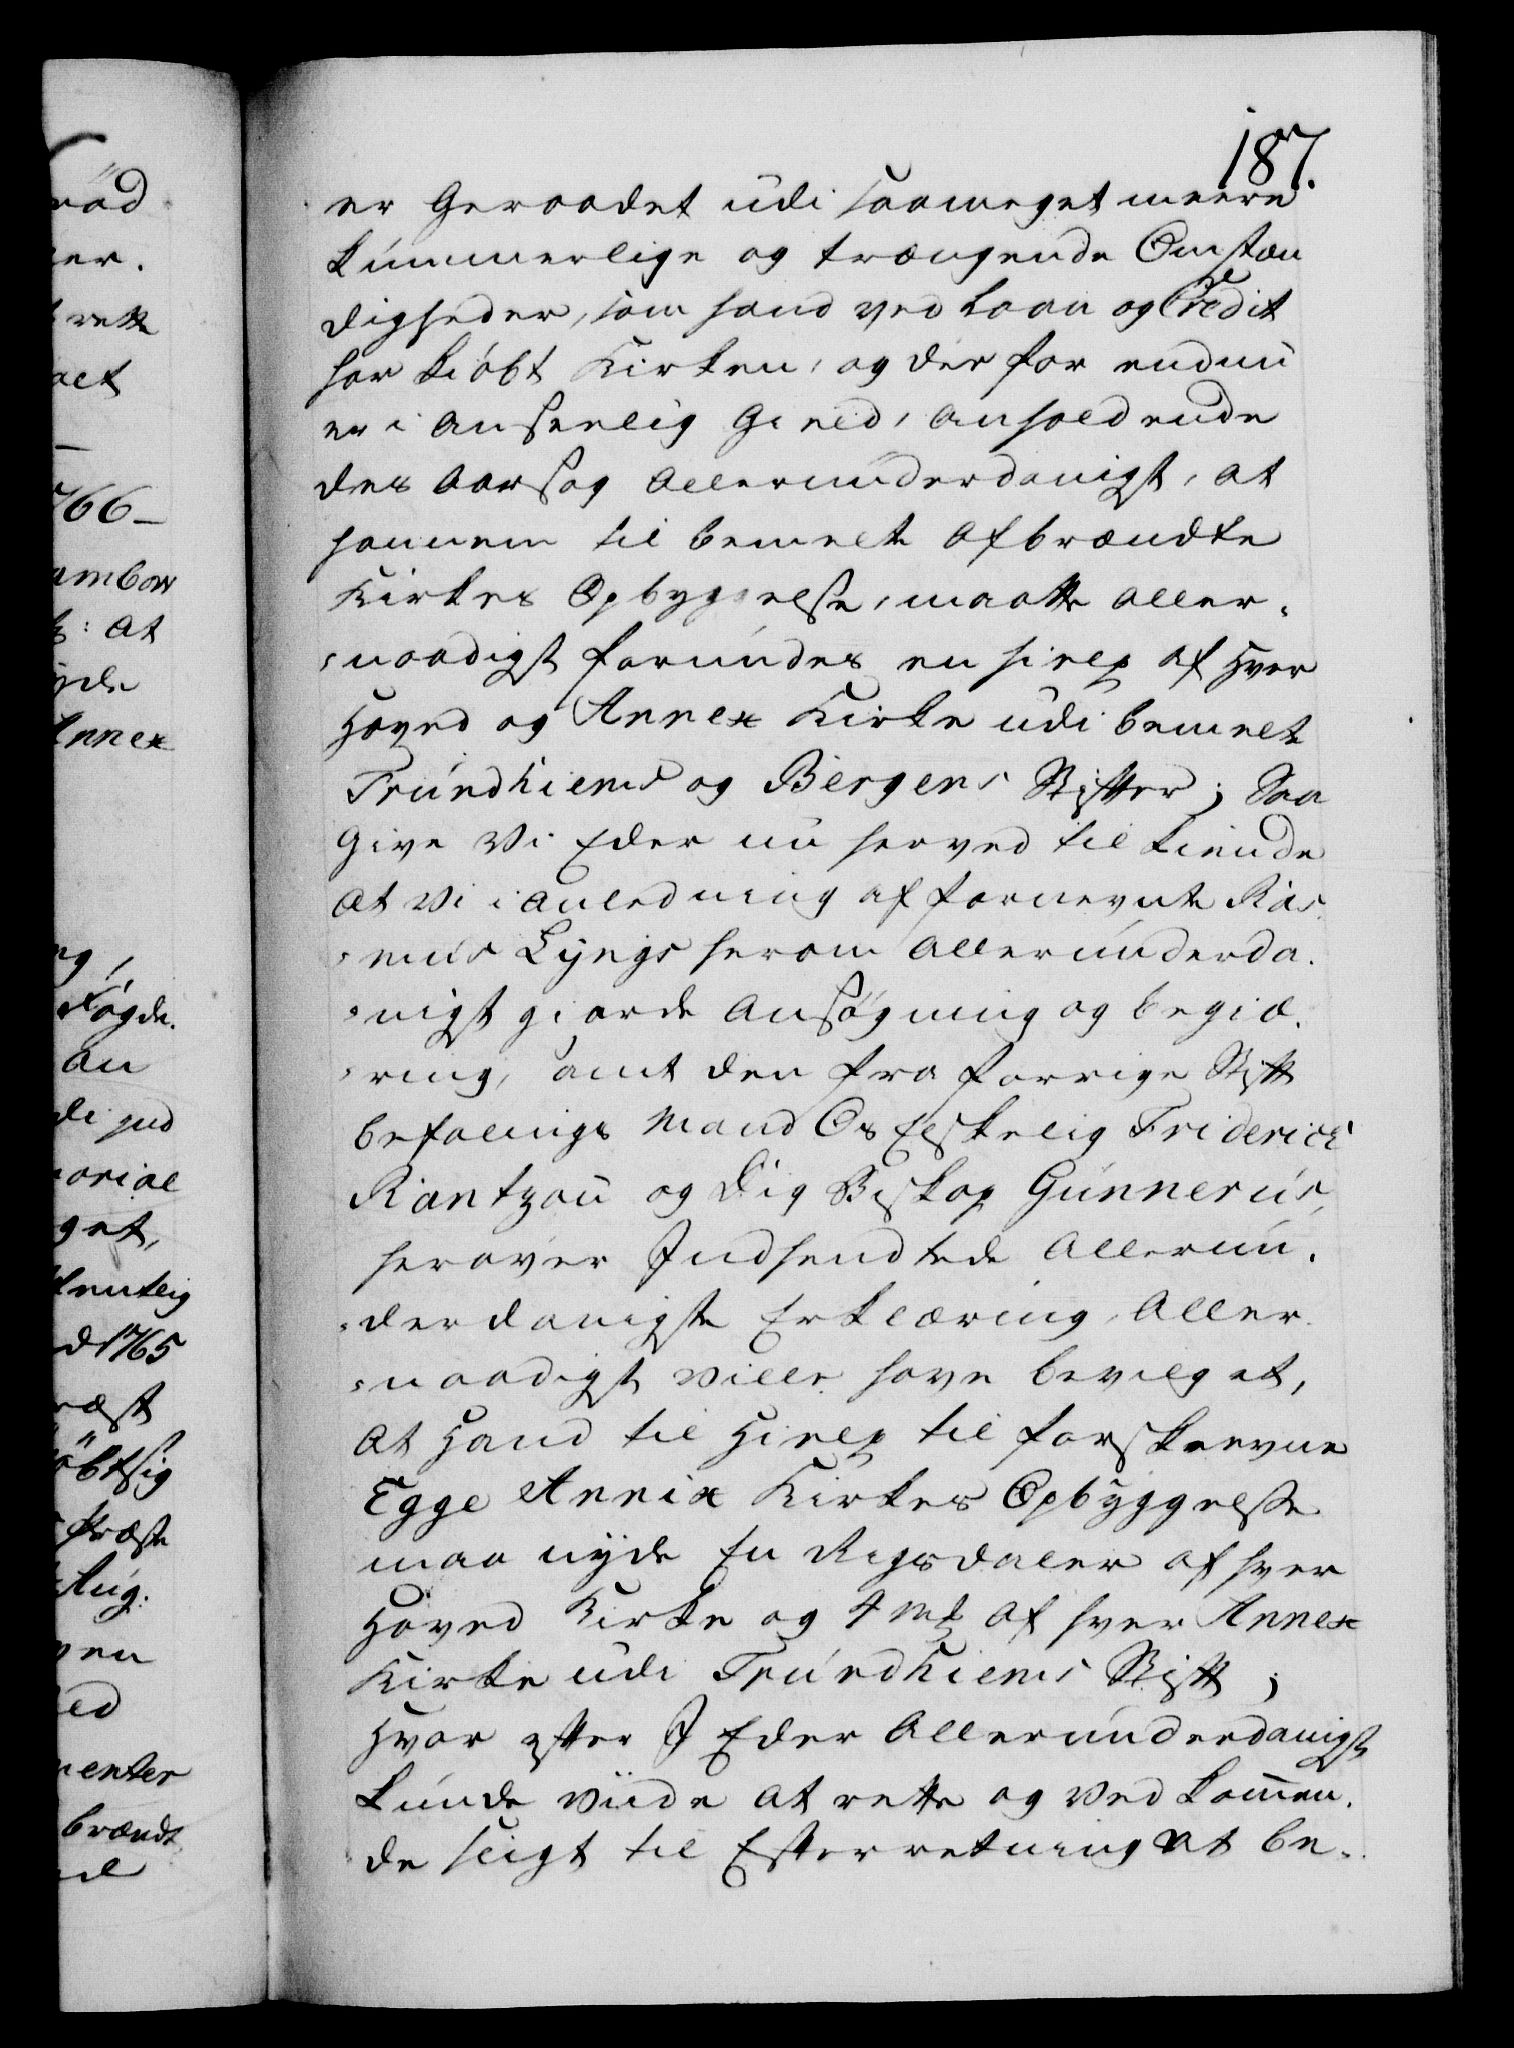 187.
er Geraadet udi saameget meere
kummerlige og trængende Omstæn
digheder, som hand ved Laan og Credit
har kiøbt Kirken, og der for endnu
er i Anseelig Gield, Anholdende
des Aarsag Allerunderdanigst, at
hannem til bemelte Afbrændte
Kirkes Opbyggelse, maatte Aller-
-naadigst forundes en hielp af hver
Hoved og Annex Kirke udi bemelte
Trundhiems og Bergens Stifter; Saa
Give Vi Eder nu herved til kiende
At Vi i Anledning af fornevnte Ras
-mus Lyngs herom Allerunderda-
-nigst giorde Ansøgning og begiæ-
-ring, samt den fra forrige Stift
befalings Mand Os Elskelig Friderich
Rantzau og Dig Biskop Gunnerus,
herover Indsendtede Allerun-
-derdanigste Erklæring, Aller-
-naadigst ville have bevilget,
At Hand til Hielp til forskrevne
Egge Annix Kirkes Opbyggelse
maa nyde En Rigsdaler af hver
Hoved Kirke og 4 mk af hver Annex
Kirke udi Trundhiems Stift;
Hvor efter I Eder Allerunderdanigst
kunde viide at rette og Ved kommen-
de sligt til Efterretning at be-
nød
er.
rette
aet
1766-
ambow
: At
yde
Annex
ng,
Fogde.
an
di sud
morial
get,
tentlig
d 1765
ræst
kiöbt sig
Præste
Aug:
ven
ed
menter
brændt